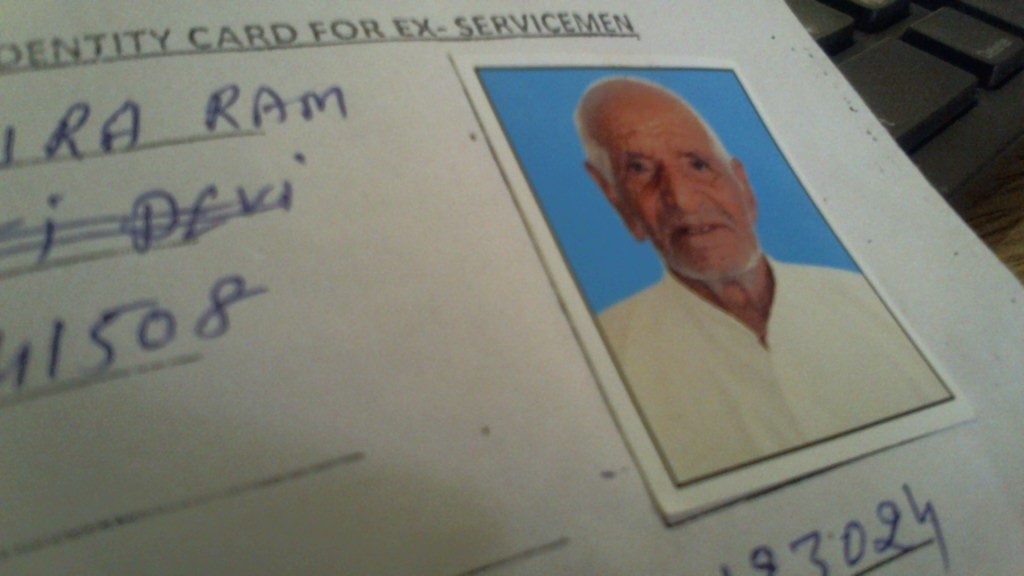 DENTITY CARD FOR EX-SERVICEMEN
IRA RAM
i Devi
41508
183024